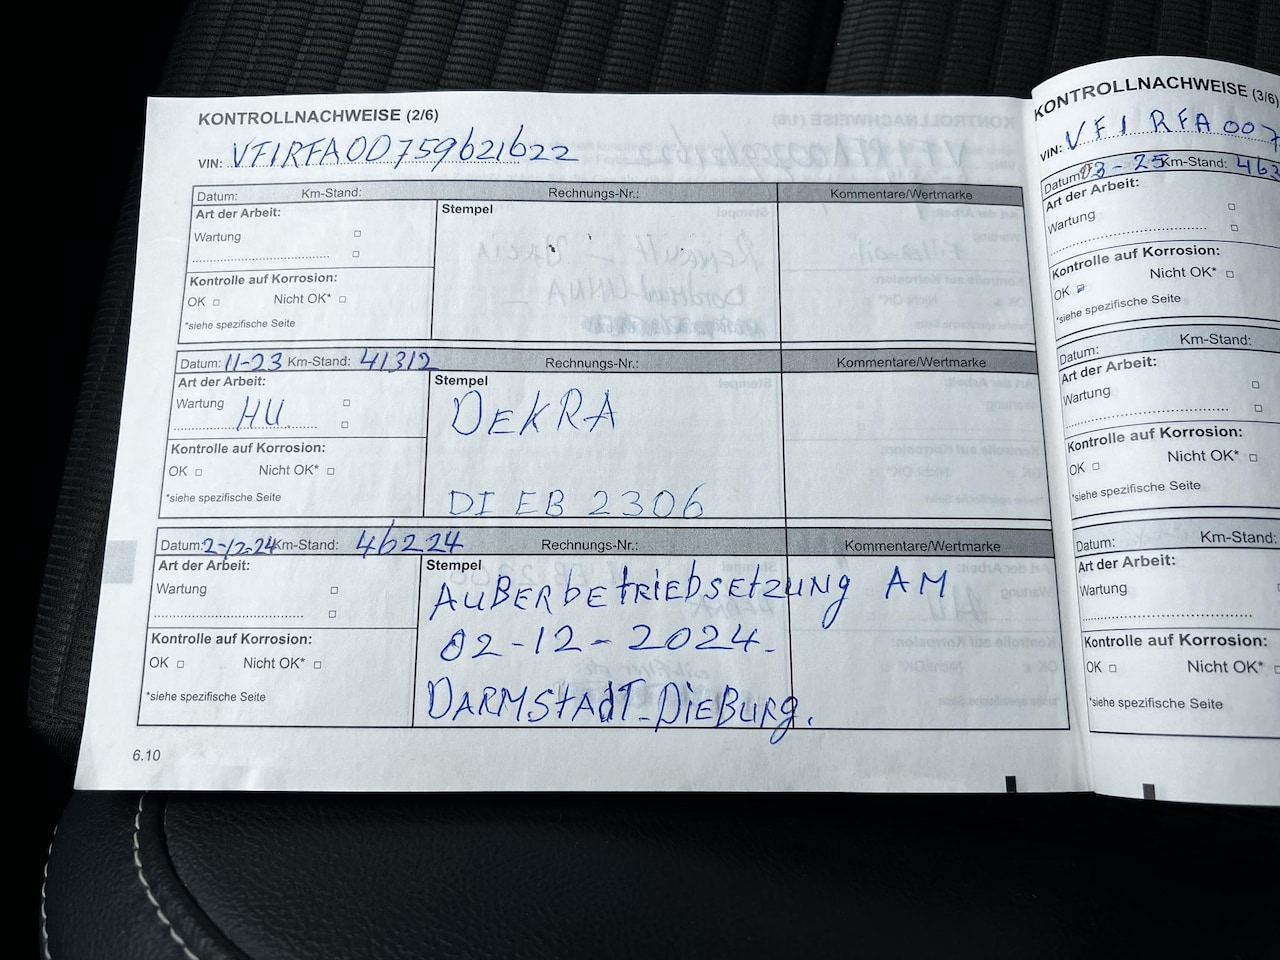 KONTROLLNACHWEISE (2/6)
VIN: VF1RFA00759621622
Datum: Km-Stand: Rechnungs-Nr.: Kommentare/Wertmarke
Art der Arbeit: Stempel
Wartung
Kontrolle auf Korrosion:
OK Nicht OK*
*siehe spezifische Seite
Datum: 11-23 Km-Stand: 41312 Rechnungs-Nr.: Kommentare/Wertmarke
Art der Arbeit: Stempel
Wartung DEKRA
HU
Kontrolle auf Korrosion:
OK Nicht OK*
*siehe spezifische Seite DI EB 2306
Datum: 2-12-24 Km-Stand: 46224 Rechnungs-Nr.: Kommentare/Wertmarke
Art der Arbeit: Stempel
Wartung AUßERbETRIEbSETZUNG AM
Kontrolle auf Korrosion: 02-12-2024.
OK Nicht OK*
*siehe spezifische Seite DARMSTAdT-DiEBURg.
6.10
KONTROLLNACHWEISE (3/6)
VIN: VF1RFA007
Datum: 03-25 Km-Stand: 462
Art der Arbeit:
Wartung
Kontrolle auf Korrosion:
OK Nicht OK*
*siehe spezifische Seite
Datum: Km-Stand:
Art der Arbeit:
Wartung
Kontrolle auf Korrosion:
OK Nicht OK*
*siehe spezifische Seite
Datum: Km-Stand:
Art der Arbeit:
Wartung
Kontrolle auf Korrosion:
OK Nicht OK*
*siehe spezifische Seite